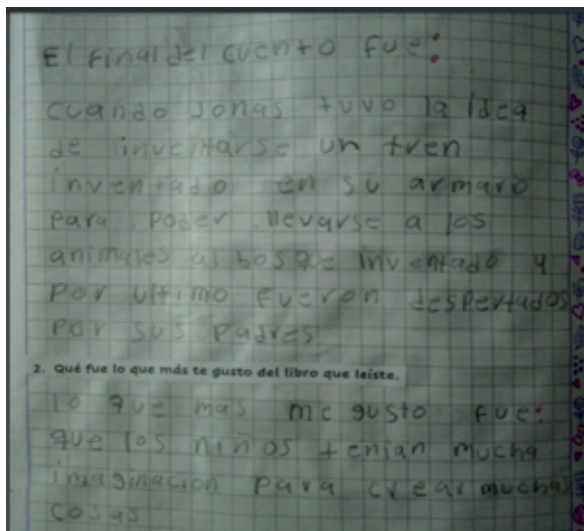 El final del cuento fue:
cuando Jonas tuvo la idea
de inventarse un tren
inventado en su armario
para poder llevarse a los
animales al bosque inventado y
por ultimo fueron despertados
por sus padres
2. Qué fue lo que más te gusto del libro que leíste.
lo que mas me gusto fue:
que los niños tenian mucha
imaginacion para crear muchas
cosas